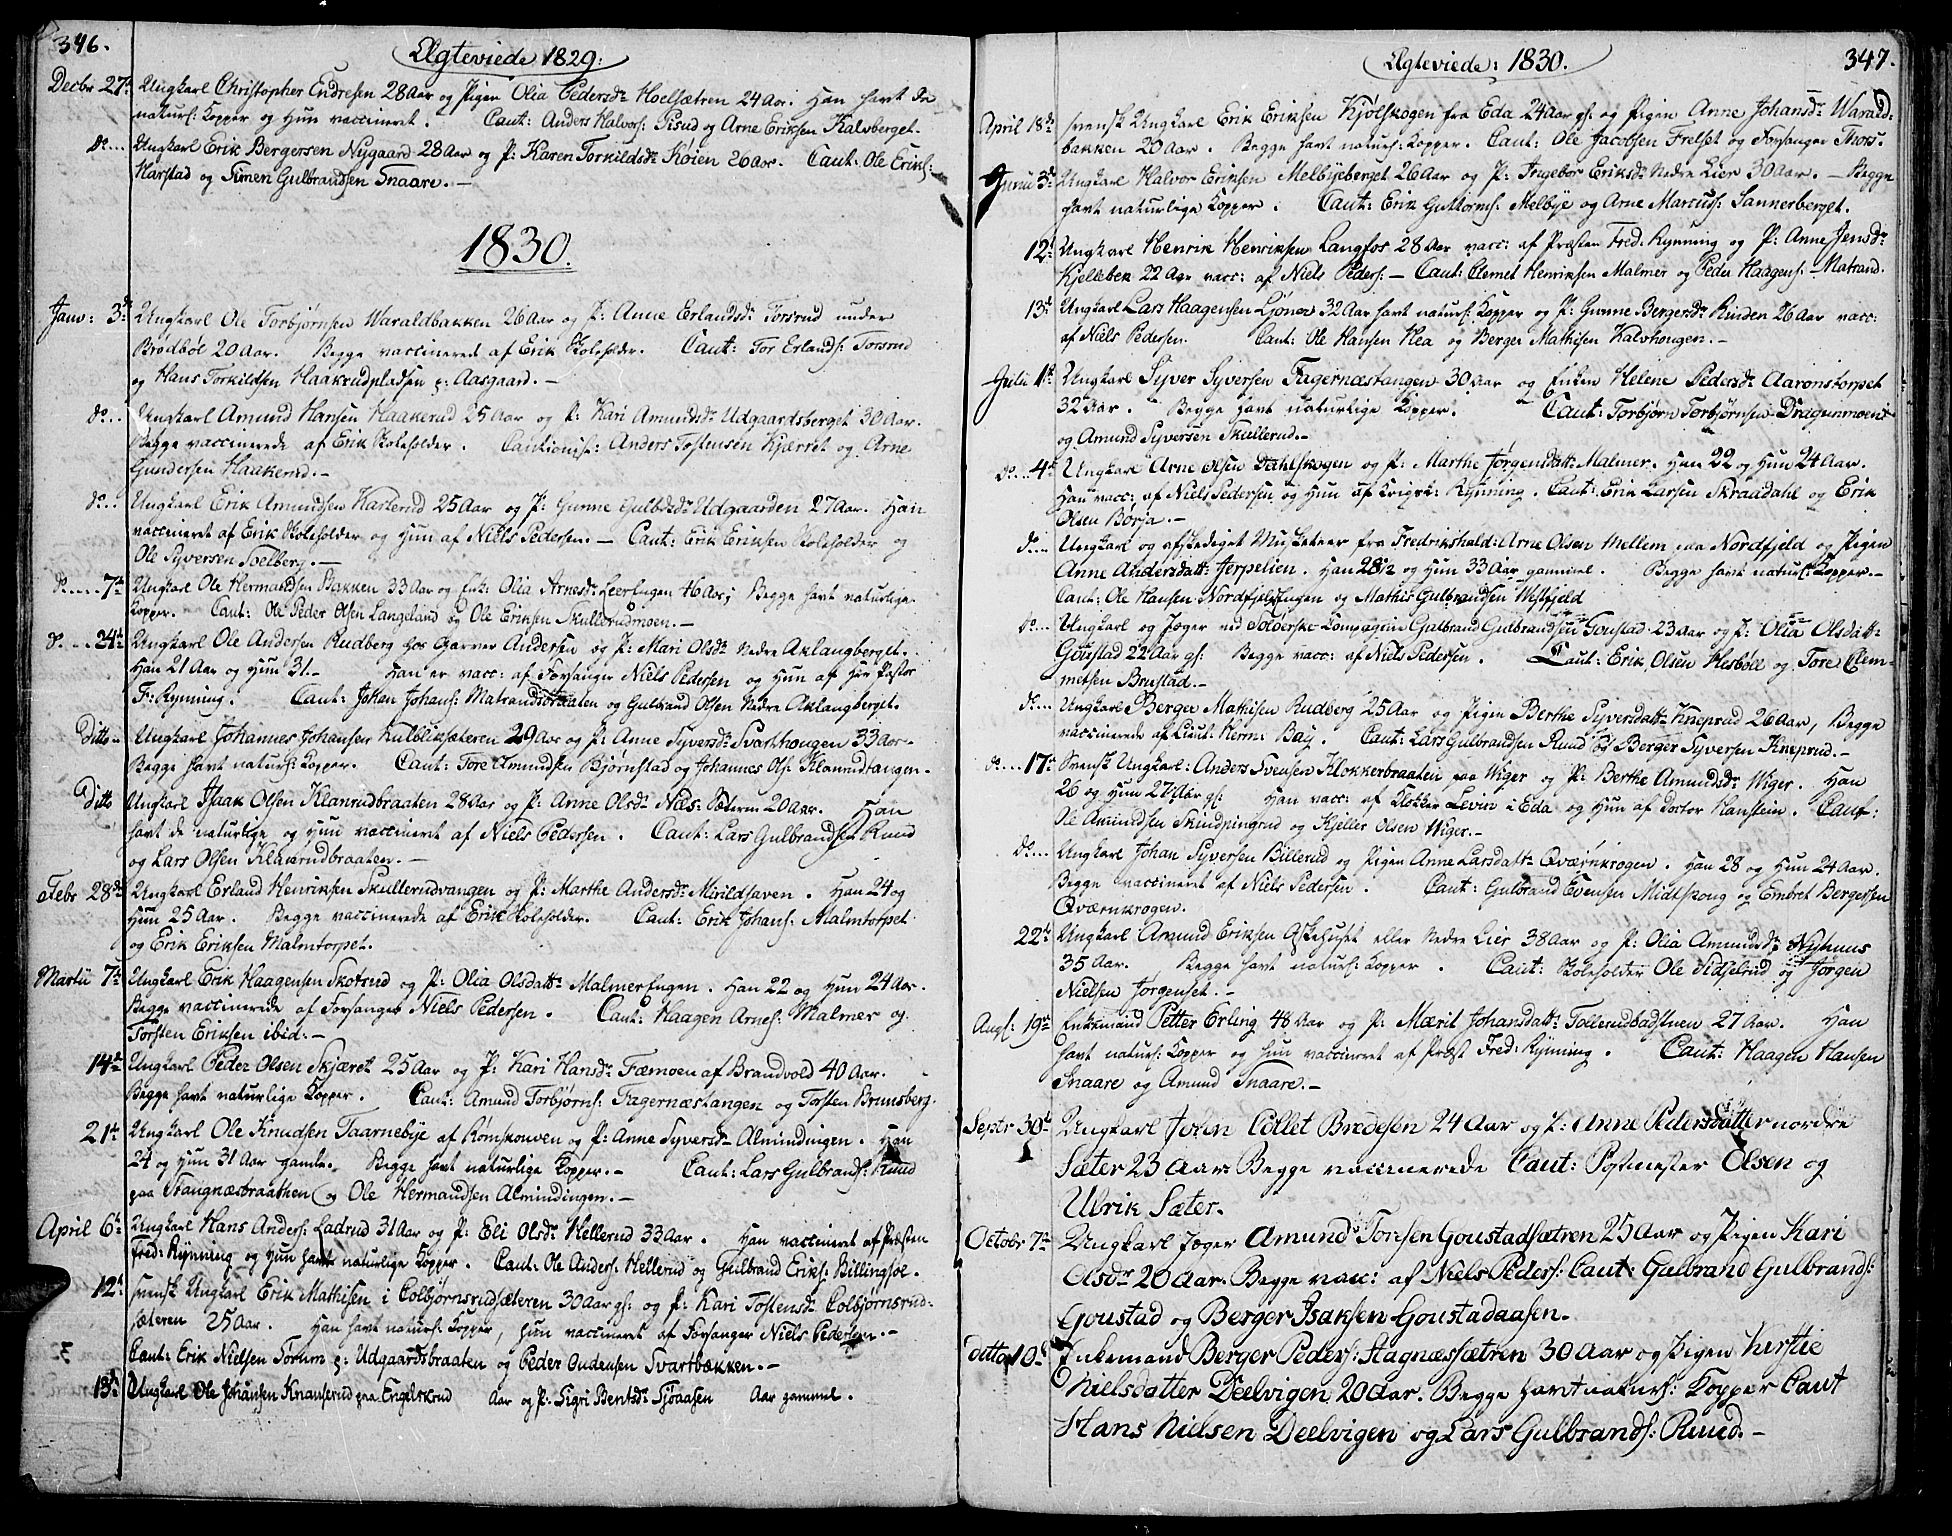 346.
Ægteviede 1829:
Decbr 27de Ungkarl Christopher Endresen 28 Aar og Pigen Olia Pedersdr Hoelsætren 24 Aar. Han havt de
naturl: Kopper og hun vaccineret. Caut: Anders Halvors: Pisud og Arne Eriksen Kalvberget.
do.... Ungkarl Erik Bergersen Nygaard 28 Aar og P: Karen Torkildsdr Køien 26 Aar. Caut: Ole Eriks:
Harstad og Simen Gulbrandsen Snaare.—
1830.
Janv: 3de Ungkarl Ole Torbjørnsen Waraldbakken 26 Aar og P: Anne Erlandsdr Torsrud under
Brødbøl 20 Aar. Begge vaccinerede af Erik Skoleholder. Caut: Tor Erlands: Torsrud
og Hans Torkildsen Haakrudpladsen p: Aasgaard.—
do... Ungkarl Amund Hansen Haakerud 25 Aar og P: Kari Amundsdr Udgaardsberget 30 Aar.
Begge vaccinerede af Erik Skoleholder. Cautionist: Anders Tostensen Kjærret og Arne
Gundersen Haakerud.—
do... Ungkarl Erik Amundsen Karterud 25 Aar og P: Gunne Gulbdsdr Udgaarden 27 Aar. Han
vaccineret af Erik Skoleholder og hun af Niels Pedersen.— Caut: Erik Eriksen Skoleholder og
Ole Syversen Soelberg.—
do.... 7de Ungkarl Ole Hermandsen Bakken 33 Aar og Enk: Olia Arnesdr Leerengen 46 Aar; Begge havt naturlige
Kopper. Caut: Ole Peder Olsen Langeland og Ole Eriksen Skullerudmoen.—
do.... 24de Ungkarl Ole Andersen Rudberg hos Garver Andersen og P: Mari Olsdr Nedre Aklangberget.
Han 21 Aar og hun 31.— Han er vacc: af Forsanger Niels Pedersen og hun af Hür Pastor
F: Rynning. Caut: Johan Johans: Matrandsbraaten og Gulbrand Olsen Nedre Aklangberget.
Ditto.. Ungkarl Johannes Johansen Kulbliksæteren 29 Aar og P: Anne Syversdr Svarthougen 33 Aar.
Begge havt naturl: Kopper. Caut: Tore Amundsen Bjørnstad og Johannes Ols: Klanrudtangen.
Ditto Ungkarl Isaak Olsen Klanrudbraaten 28 Aar og P: Anne Olsdr Næs: Sæteren 20 Aar. Han
havt de naturlige og hun vaccineret af Niels Pedersen. Caut: Lars Gulbrandsen Ruud
og Lars Olsen Klanrudbraaten.—
Febr 28de Ungkarl Erland Henriksen Skullerudvangen og P: Marthe Andersdr Mirildhaven. Han 24 og
hun 25 Aar. Begge vaccinerede af Erik Skoleholder. Caut: Erik Johans: Malmtorpet
og Erik Eriksen Malmtorpet.
Martii 7de Ungkarl Erik Haagensen Skotrud og P: Olia Olsdattr Malmerengen. Han 22 og hun 24 Aar.
Begge vaccinerede af Forsanger Niels Pedersen. Caut: Haagen Arnes: Malmer og
Torsten Eriksen ibid:—
14de Ungkarl Peder Olsen Skjæret 25 Aar og P: Kari Hansdr Fæmoen af Brandvold 40 Aar.
Begge havt naturlige Kopper. Caut: Amund Torbjørns: Fagernæstangen og Torsten Brunsberg.
21de Ungkarl Ole Knudsen Taarnebye af Romskouven og P: Anne Syversdr Almindingen. Han
24 og hun 31 Aar gamle. Begge havt naturlige Kopper.— Caut: Lars Gulbrands: Ruud
paa Stangnæsbraathen og Ole Hermandsen Almindingen.—
April 6te Ungkarl Hans Anders: Ladrud 31 Aar og P: Eli Olsdr Hellerud 33 Aar. Han vaccineret af Præsten
Fred: Rynning og hun havt naturlige Kopper. Caut: Ole Anders: Hellerud og Gulbrand Eriks: Billingsøe.
12te svensk Ungkarl Erik Mathisen i Colbjørnsrudsæteren 30 Aar gl: og P: Kari Tostensdr Colbjørnsrud-
sæteren 25 Aar. Han havt naturl: Kopper, hun vaccineret af Forsanger Niels Pedersen.—
Caut: Erik Nielsen Sørum p: Udgaardsbraaten og Peder Oudensen Svartbækken.—
13de Ungkarl Ole Johansen Knauserud paa Engelskrud Aar og P: Sigri Bentsdr Tjsaasen Aar gammel.
Ægteviede: 1830.
347.
April 18de svensk Ungkarl Erik Eriksen Kjølskogen fra Eda 24 Aar gl: og Pigen Anne Johansdr Warald-
bakken 20 Aar. Begge havt naturl: Kopper. Caut: Ole Jacobsen Frelset og Forsanger Thors:
Junii 3de Ungkarl Halvor Eriksen Melbyeberget 26 Aar og P: Ingebor Eriksdr Nedre Lier 30 Aar.— Begge
havt naturlige Kopper. Caut: Erik Guttorms: Melbye og Arne Marcus: Sannerberget.
12te Ungkarl Henrik Henriksen Langfos 28 Aar vacc: af Præsten Fred: Rynning og P: Anne Jensdr
Kjellebek 22 Aar vacc: af Niels Peders:— Caut: Clemet Henriksen Malmer og Peder Haagens: Matrand.
13de Ungkarl Lars Haagensen Ljøner 32 Aar havt naturl: Kopper og P: Gunne Bergersdr Rinden 26 Aar vacc:
af Niels Pedersen. Caut: Ole Hansen Hea og Berger Mathisen Kalvhougen.—
Julii 1ste Ungkarl Syver Syversen Fagernæstangen 30 Aar og Enken Helene Pedersdr Aaronstorpet
32 Aar. Begge havt naturlige Kopper. Caut: Torbjørn Torbjørnsen Dragunmoen
og Amund Syversen Skullerud.—
do.. 4de Ungkarl Arne Olsen Dahlskogen og P: Marthe Jørgensdatt: Malmer. Han 22 og hun 24 Aar.
Han vacc: af Niels Pedersen og hun af Rynning. Caut: Erik Larsen Skraadahl og Erik
Olsen Børja.—
do... Ungkarl og afskediget Musketeer fra Fredrikshald: Arne Olsen Mellem paa Nordfjeld og Pigen
Anne Andersdatt: Jerpelien. Han 28½ og hun 33 Aar gammel. Begge havt naturl: Kopper.—
Caut: Ole Hansen Nordfjeldengen og Mathis Gulbrandsen Westfjeld
do... Ungkarl og Jæger ved Solørske Compagnie Gulbrand Gulbrandsen Goustad 23 Aar og P: Olia Olsdatt:
Goustad 22 Aar gl: Begge vacc: af Niels Pedersen. Caut: Erik Olsen Hesbøll og Tore Clem-
metsen Brustad.—
do... Ungkarl Berger Mathisen Rudberg 25 Aar og Pigen Berthe Syversdattr Kneprud 26 Aar, Begge
vaccinerede af Lieut: Herm: Bay. Caut: Lars Gulbrandsen Ruud og Berger Syversen Kneprud.—
do... 17de Svensk Ungkarl: Anders Svensen Klokkerbraaten paa Wiger og P: Berthe Amundsdr Wiger. Han
26 og hun 27 Aar gl: Han vacc: af Klokker Levin i Eda og hun af Doctor Hanstein. Caut:
Ole Amundsen Skindpingrud og Kjeller Olsen Wiger.—
do... Ungkarl Johan Syversen Billerud og Pigen Anne Larsdattr Qværnkrogen. Han 28 og hun 24 Aar.
Begge vaccineret af Niels Pedersen. Caut: Gulbrand Evensen Midtskoug og Embret Bergersen
Qværnkrogen.
22de Ungkarl Amund Eriksen Askehuset eller Nedre Lier 38 Aar og P: Olia Amundsdr Nyhuus
35 Aar. Begge havt naturl: Kopper. Caut: Skoleholder Ole Sidselrud og Jørgen
Nielsen Jørgenset.—
Augs: 19de Enkemand Petter Erling 48 Aar og P: Mærit Johansdatt: Tollerudbadstuen 27 Aar. Han
havt naturl: Kopper og hun vaccineret af Præst Fred: Rynning. Caut: Haagen Hansen
Snaare og Amund Snaare.—
Septr 30de Ungkarl John Collet Bredesen 24 Aar og P: Anne Pedersdatter nordre
Sæter 23 Aar. Begge vaccinerede Caut: Postmester Olsen og
Ulrik Sæter.
Octobr 7de Ungkarl Jæger Amund Torsen Goustadsætren 25 Aar og Pigen Kari
Olsdr 20 Aar. Begge vacc: af Niels Peders: Caut: Gulbrand Gulbrands:
Goustad og Berger Isaksen Goustadaasen.
ditto 10de Enkemand Berger Peders: Stagnæssætren 30 Aar og Pigen Kerstie
Nielsdatter Deelvigen 20 Aar. Begge havt naturl: Kopper Caut
Hans Nielsen Deelvigen og Lars Gulbrands: Ruud.—